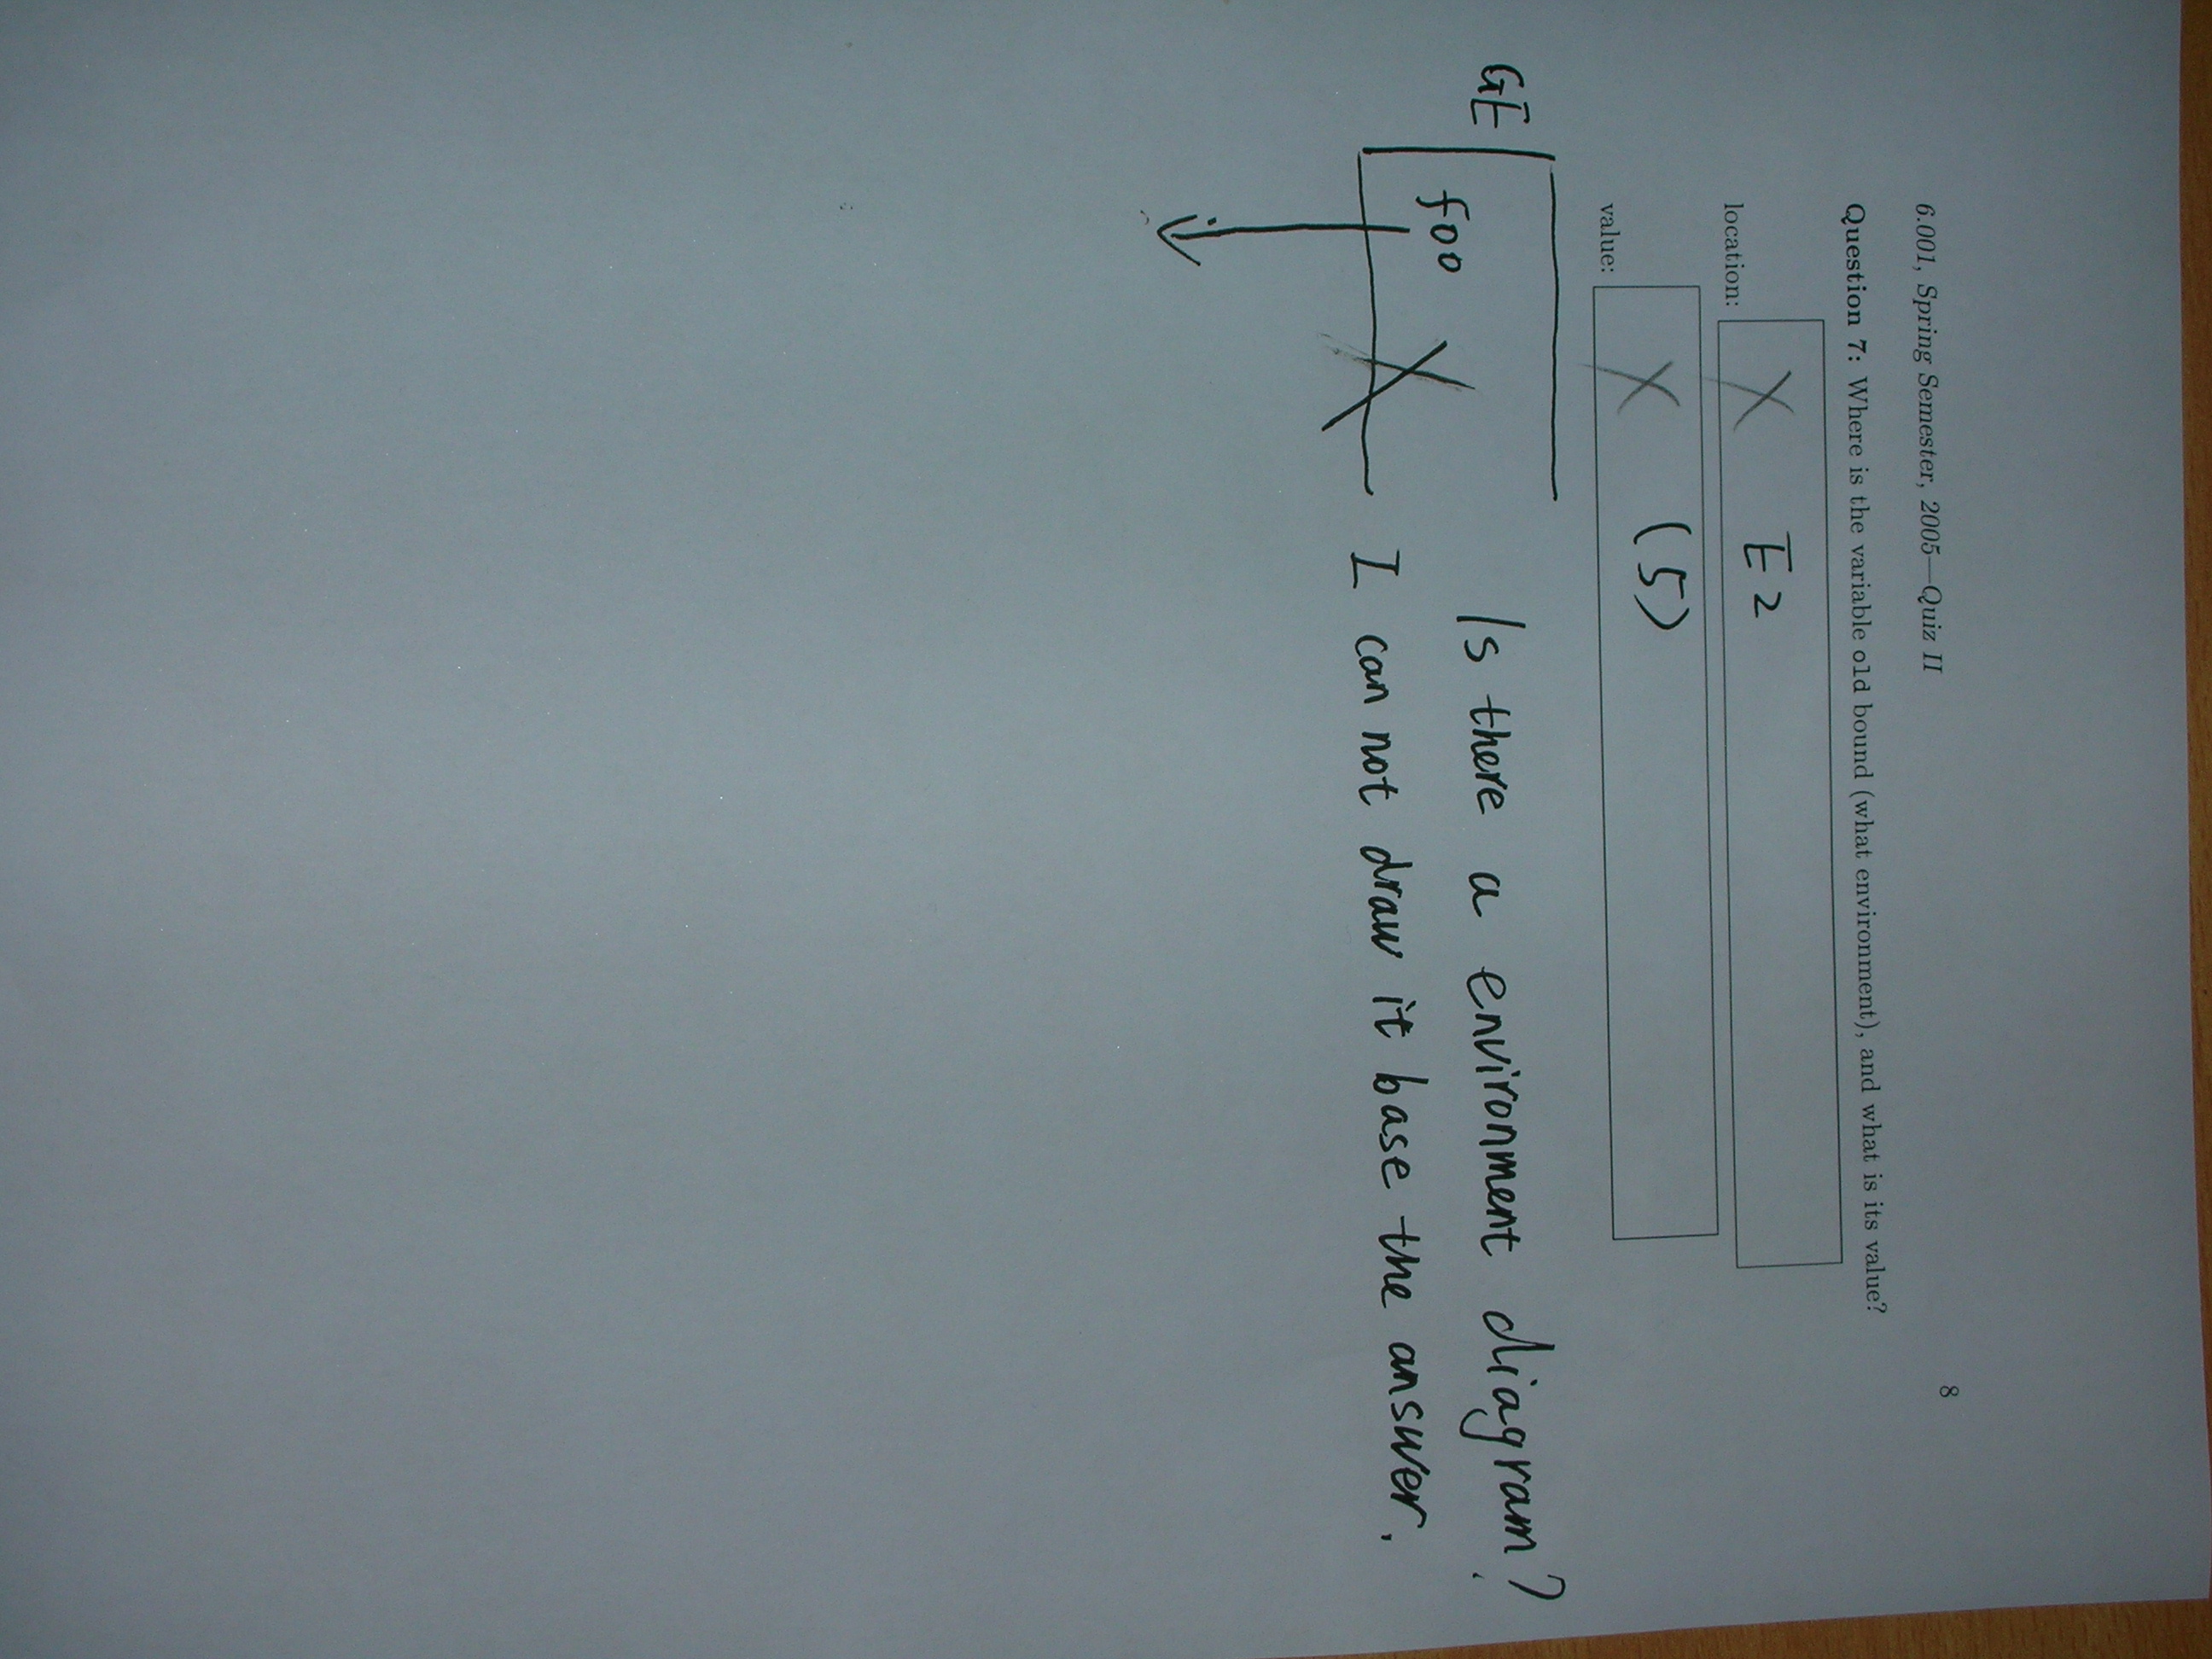 6.001, Spring Semester, 2005—Quiz II 8
Question 7: Where is the variable old bound (what environment), and what is its value?
location: X E2
value: X (5)
GE foo X
Is there a environment diagram?
I can not draw it base the answer.